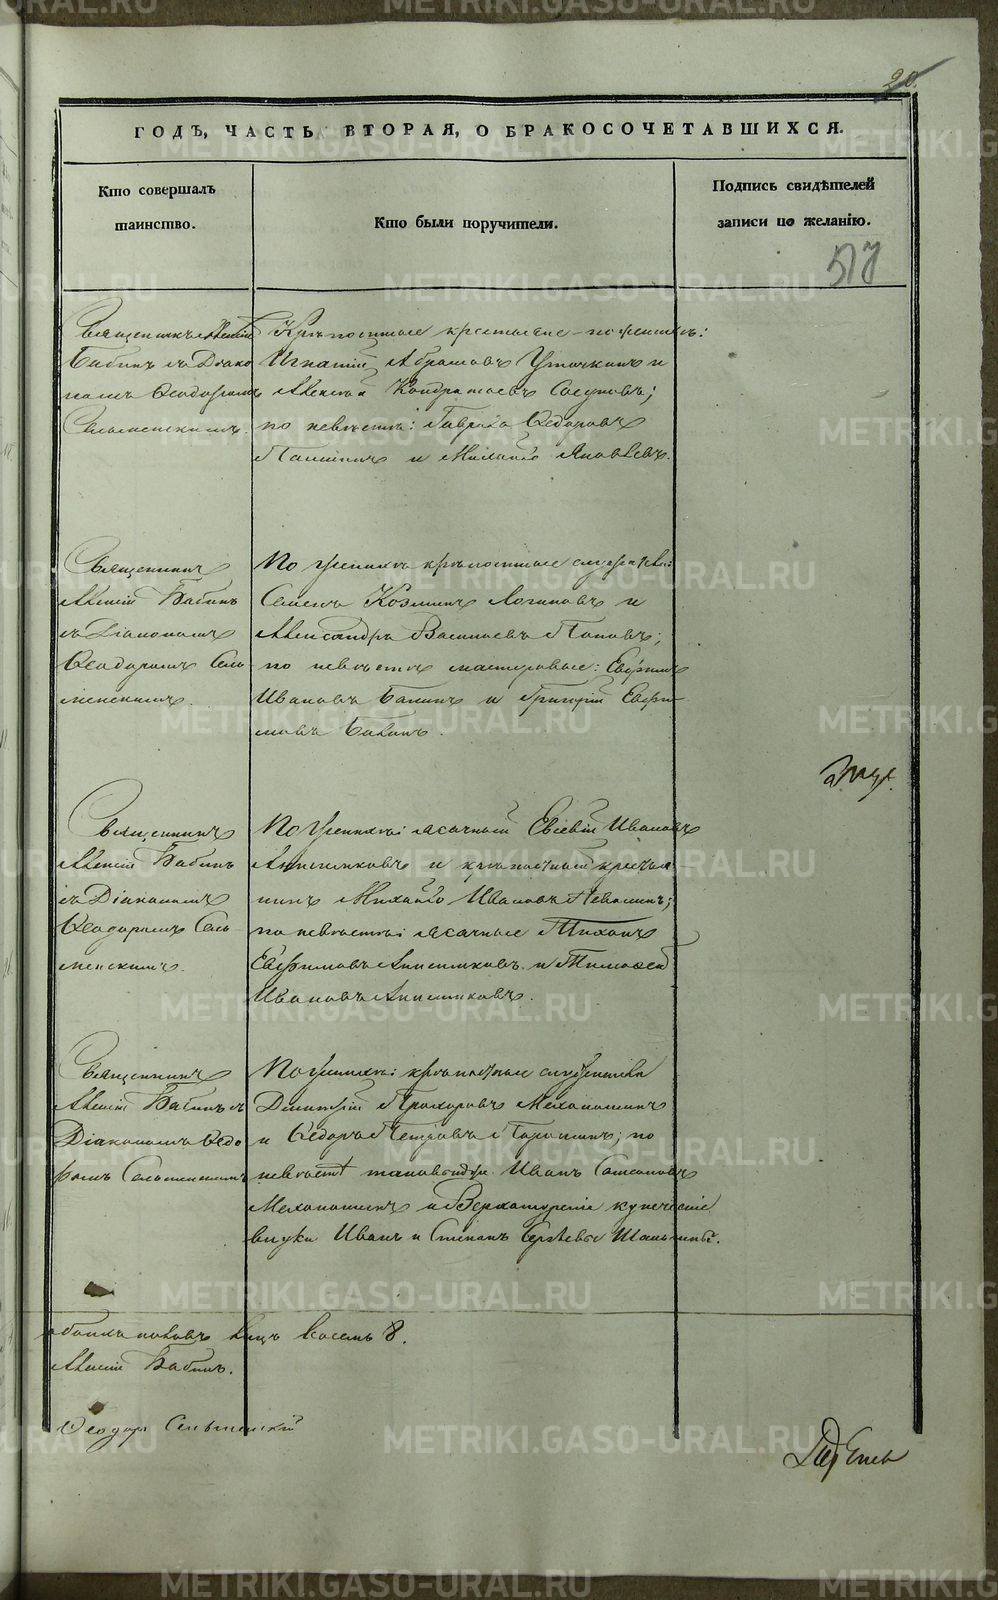 20.
ГОДЪ, ЧАСТЬ ВТОРАЯ, О БРАКОСОЧЕТАВШИХСЯ.
Кто совершалъ
таинство.
Кто были поручители.
Подпись свидѣтелей
записи по желанію.
57
Священникъ Алексій
Бабинъ съ Діако
номъ Ѳеодоромъ
Сельменскимъ.
Крѣпостные крестьяне по женихѣ:
Игнатій Абрамовъ Уточкинъ и
Алексѣй Кондратьевъ Сосуновъ;
по невѣстѣ: Гаврило Ѳедоровъ
и Михайло Яковлевъ.
Священникъ
Алексій Бабинъ
съ Діакономъ
Ѳеодоромъ Сель
менскимъ.
По женихѣ крѣпостные служители:
Семенъ Козминъ Логиновъ и
Александръ Васильевъ Поповъ;
по невѣстѣ мастеровые: Евфимъ
Ивановъ Бабинъ и Григорій Евфи
мовъ Бабинъ.
Священникъ
Алексій Бабинъ
съ Діакономъ
Ѳеодоромъ Сель
менскимъ.
По женихѣ: ясачный Евсевій Ивановъ
Анисимковъ и крѣпостный крестья
нинъ Михайло Ивановъ
по невѣстѣ: ясачные Тихонъ
Евфимовъ Анисимковъ и Тимоѳей
Ивановъ Анисимковъ.
Священникъ
Алексій Бабинъ съ
Діакономъ Ѳедо
ромъ Сельменскимъ
По женихѣ: крѣпостные служители
Димитрій Прохоровъ Мехоношинъ
и Ѳедоръ Петровъ Паршинъ; по
невѣстѣ таковой же Иванъ Самсоновъ
Мехоношинъ и Верхотурскіе купеческіе
внуки Иванъ и Степанъ Сергѣевы
обоихъ половъ лицъ восемь 8.
Алексій Бабинъ.
Ѳеодоръ Сельменскій
METRIKI.GASO-URAL.RU